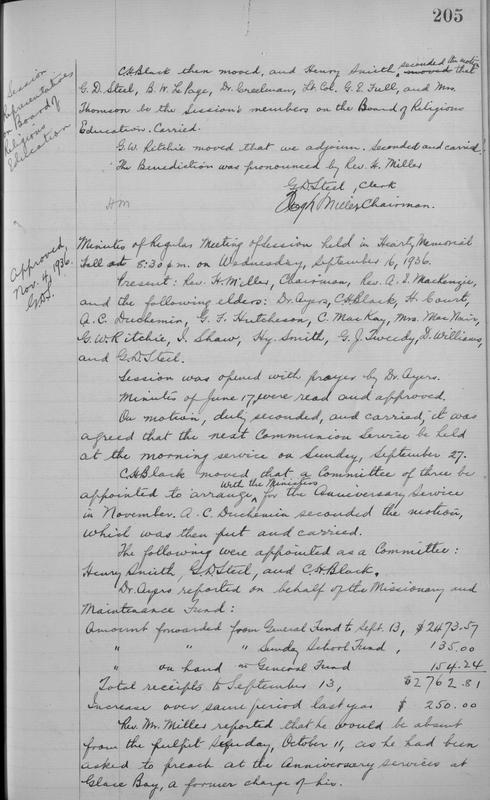 205
Session
Representatives
on Board of
Religious
Education
C.H. Black then moved, and Henry Smith, seconded the motion moved that
G.D. Steel, B.W. LePage, Dr. Creelman, Lt. Col. G.E. Full, and Mrs.
Thomson be the Session's members on the Board of Religious
Education. Carried.
G.W. Ritchie moved that we adjourn. Seconded and carried.
The Benediction was pronounced by Rev. H. Miller
G.D. Steel, Clerk
HM
Hugh Miller, Chairman.
Approved,
Nov. 4, 1936.
G.D.S.
Minutes of Regular Meeting of Session held in Heartz Memorial
Hall at 8:30 p.m. on Wednesday, September 16, 1936.
Present: Rev. H. Miller, Chairman, Rev. A. I. MacKenzie,
and the following elders: Dr. Ayers, C.H. Black, H. Court,
A.C. Duchemin, G.F. Hutcheson, C. MacKay, Mrs. MacNair,
G.W. Ritchie, I. Shaw, Hy. Smith, G.J. Tweedy, D. Williams,
and G.D. Steel.
Session was opened with prayer by Dr. Ayers.
Minutes of June 17, were read and approved.
On motion, duly seconded, and carried, it was
agreed that the next Communion Service be held
at the morning service on Sunday, September 27.
C.H. Black moved that a Committee of three be
appointed to arrange with the Ministers for the Anniversary Service
in November. A.C. Duchemin seconded the motion,
which was then put and carried.
The following were appointed as a Committee:
Henry Smith, G.D. Steel, and C.H. Black.
Dr. Ayers reported on behalf of the Missionary and
Maintenance Fund:
Amount forwarded from General Fund to Sept. 13, $2473.57
" " " Sunday School Fund, 135.00
" on hand in General Fund 154.24
Total receipts to September 13, $2762.81
Increase over same period last year $ 250.00
Rev. Mr. Miller reported that he would be absent
from the pulpit Sunday, October 11, as he had been
asked to preach at the Anniversary services at
Glace Bay, a former charge of his.